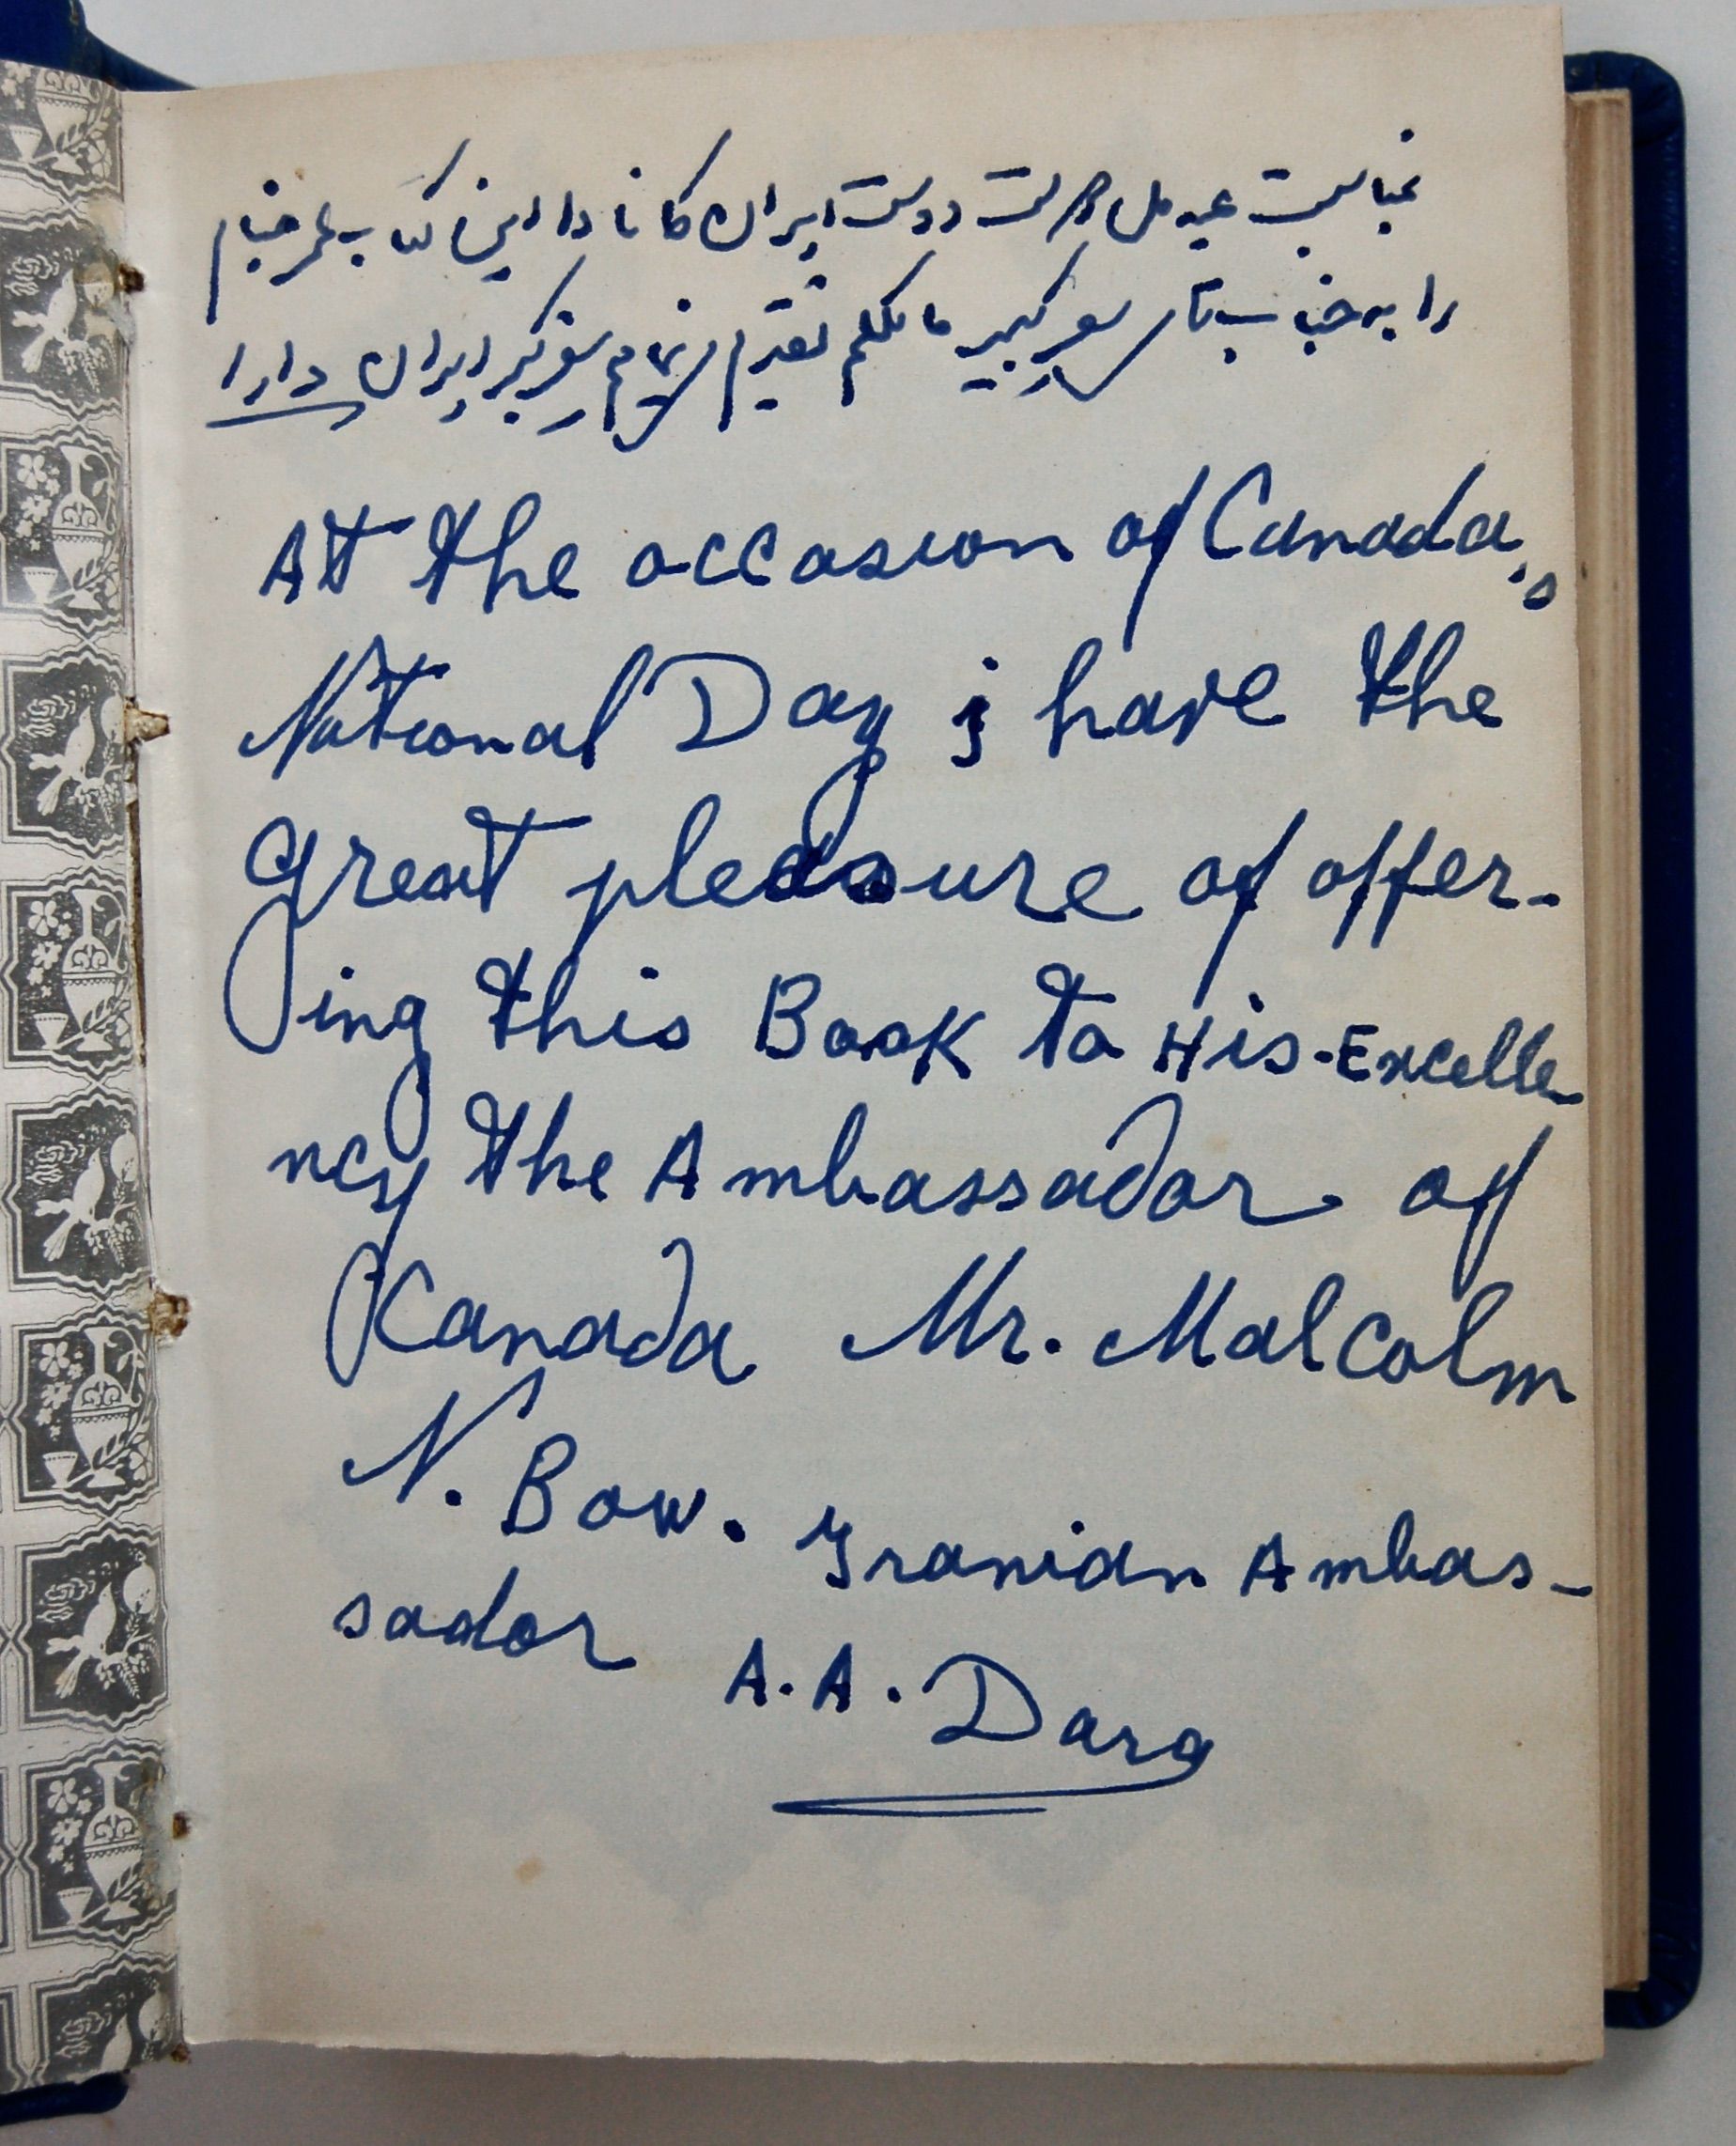 بمناسبت عید ملی دولت دوست ایران کانادا این کتاب عمر خیام
را به جناب آقای سفیر کبیر مالکلم تقدیم مینمایم سفیر کبیر ایران دارا
At the occasion of Canada's
National Day i have the
great pleasure of offer-
ing this Book to His-Excelle-
ncy the Ambassador of
Canada Mr. Malcolm
N. Bow. Iranian Ambas-
sador A.A. Dara